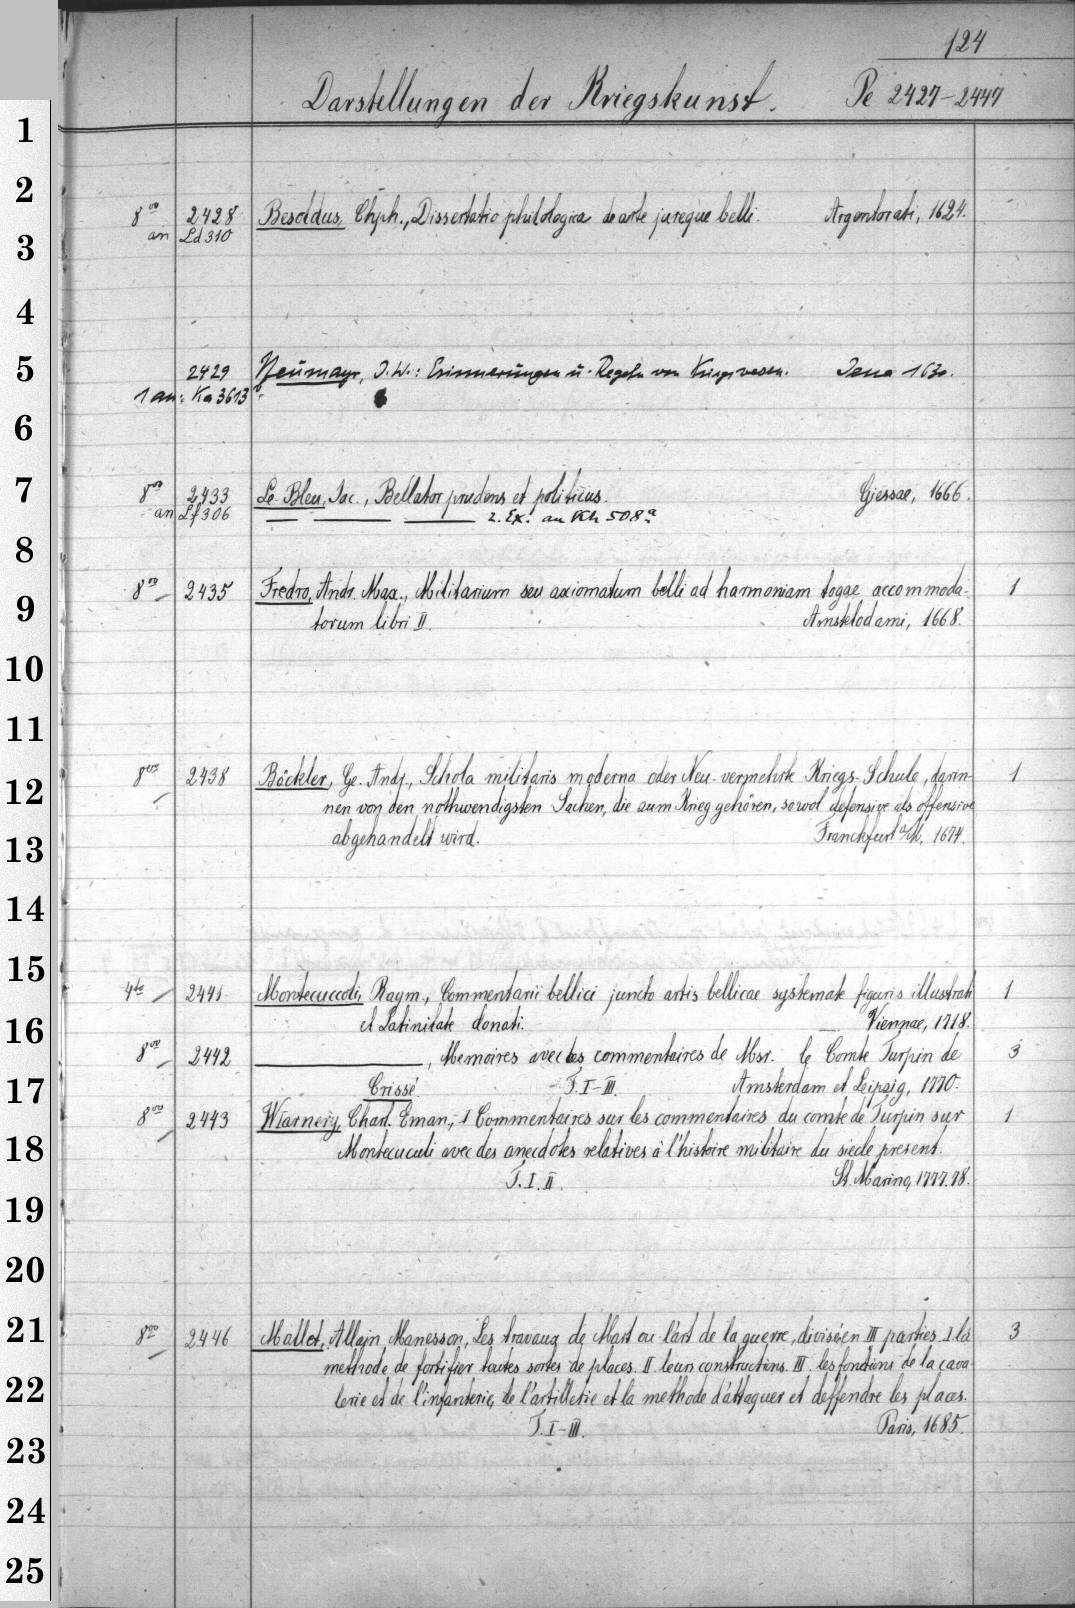 124
Darstellungen der Kriegskunst. Pe 2427-2447
1
2
8vo 2428 Besoldus, Chph., Dissertatio philologica de arte jureque belli. Argentorati, 1624.
an Ld 310
3
4
5
2429 Neumayr, J. W.: Erinnerungen u. Regeln vom Kriegswesen. Jena 1630.
1 an: Ka 3613
6
7
8vo 2433 Le Bleu, Jac., Bellator prudens et politicus. Giessae, 1666.
an Lf 306 2. Ex. an Kh 508a
8
8vo 2435 Fredro, Andr. Max., Militarium seu axiomatum belli ad harmoniam togae accommoda- 1
9
torum libri II. Amstelodami, 1668.
10
11
8vo 2438 Böckler, Ge. Andr., Schola militaris moderna oder Neu-vermehrte Kriegs-Schule, darin- 1
12
nen von den nothwendigsten Sachen, die zum Krieg gehören, sowol defensive als offensive
13
abgehandelt wird. Franckfurt a/M, 1674.
14
15
4to 2441 Montecuccoli, Raym., Commentarii bellici juncto artis bellicae systemate figuris illustrati 1
16
et Latinitate donati. Viennae, 1718.
8vo 2442 , Memoires avec les commentaires de Msr. le Comte Turpin de 3
17
Crissé. T. I-III. Amsterdam et Leipzig, 1770.
8vo 2443 Warnery, Charl. Eman., Commentaires sur les commentaires du comte de Turpin sur 1
18
Montecuculi avec des anecdotes relatives à l'histoire militaire du siècle present.
T. I. II. St. Marino, 1777.78.
19
20
21
8vo 2446 Mallet, Allain Manesson, Les travaux de Mars ou l'art de la guerre, divisé en III parties. I la 3
methode de fortifier toutes sortes de places. II. leurs constructions. III. les fonctions de la cava-
22
lerie et de l'infanterie, de l'artillerie et la methode d'attaquer et deffendre les places.
T. I-III. Paris, 1685.
23
24
25